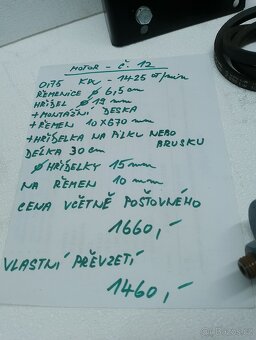 MOTOR - č. 12
0,75 KW - 1425 ot/min
ŘEMENICE ⌀ 6,5 cm
HŘÍDEL ⌀ 19 mm
+ MONTAŽNÍ DESKA
+ ŘEMEN 10x670 mm
+ HŘÍDELKA NA PILKU NEBO
BRUSKU
DELKA 30 cm
⌀ HŘÍDELKY 15 mm
NA ŘEMEN 10 mm
CENA VČETNĚ POŠTOVNÉHO
1660,-
VLASTNÍ PŘEVZETÍ
1460,-